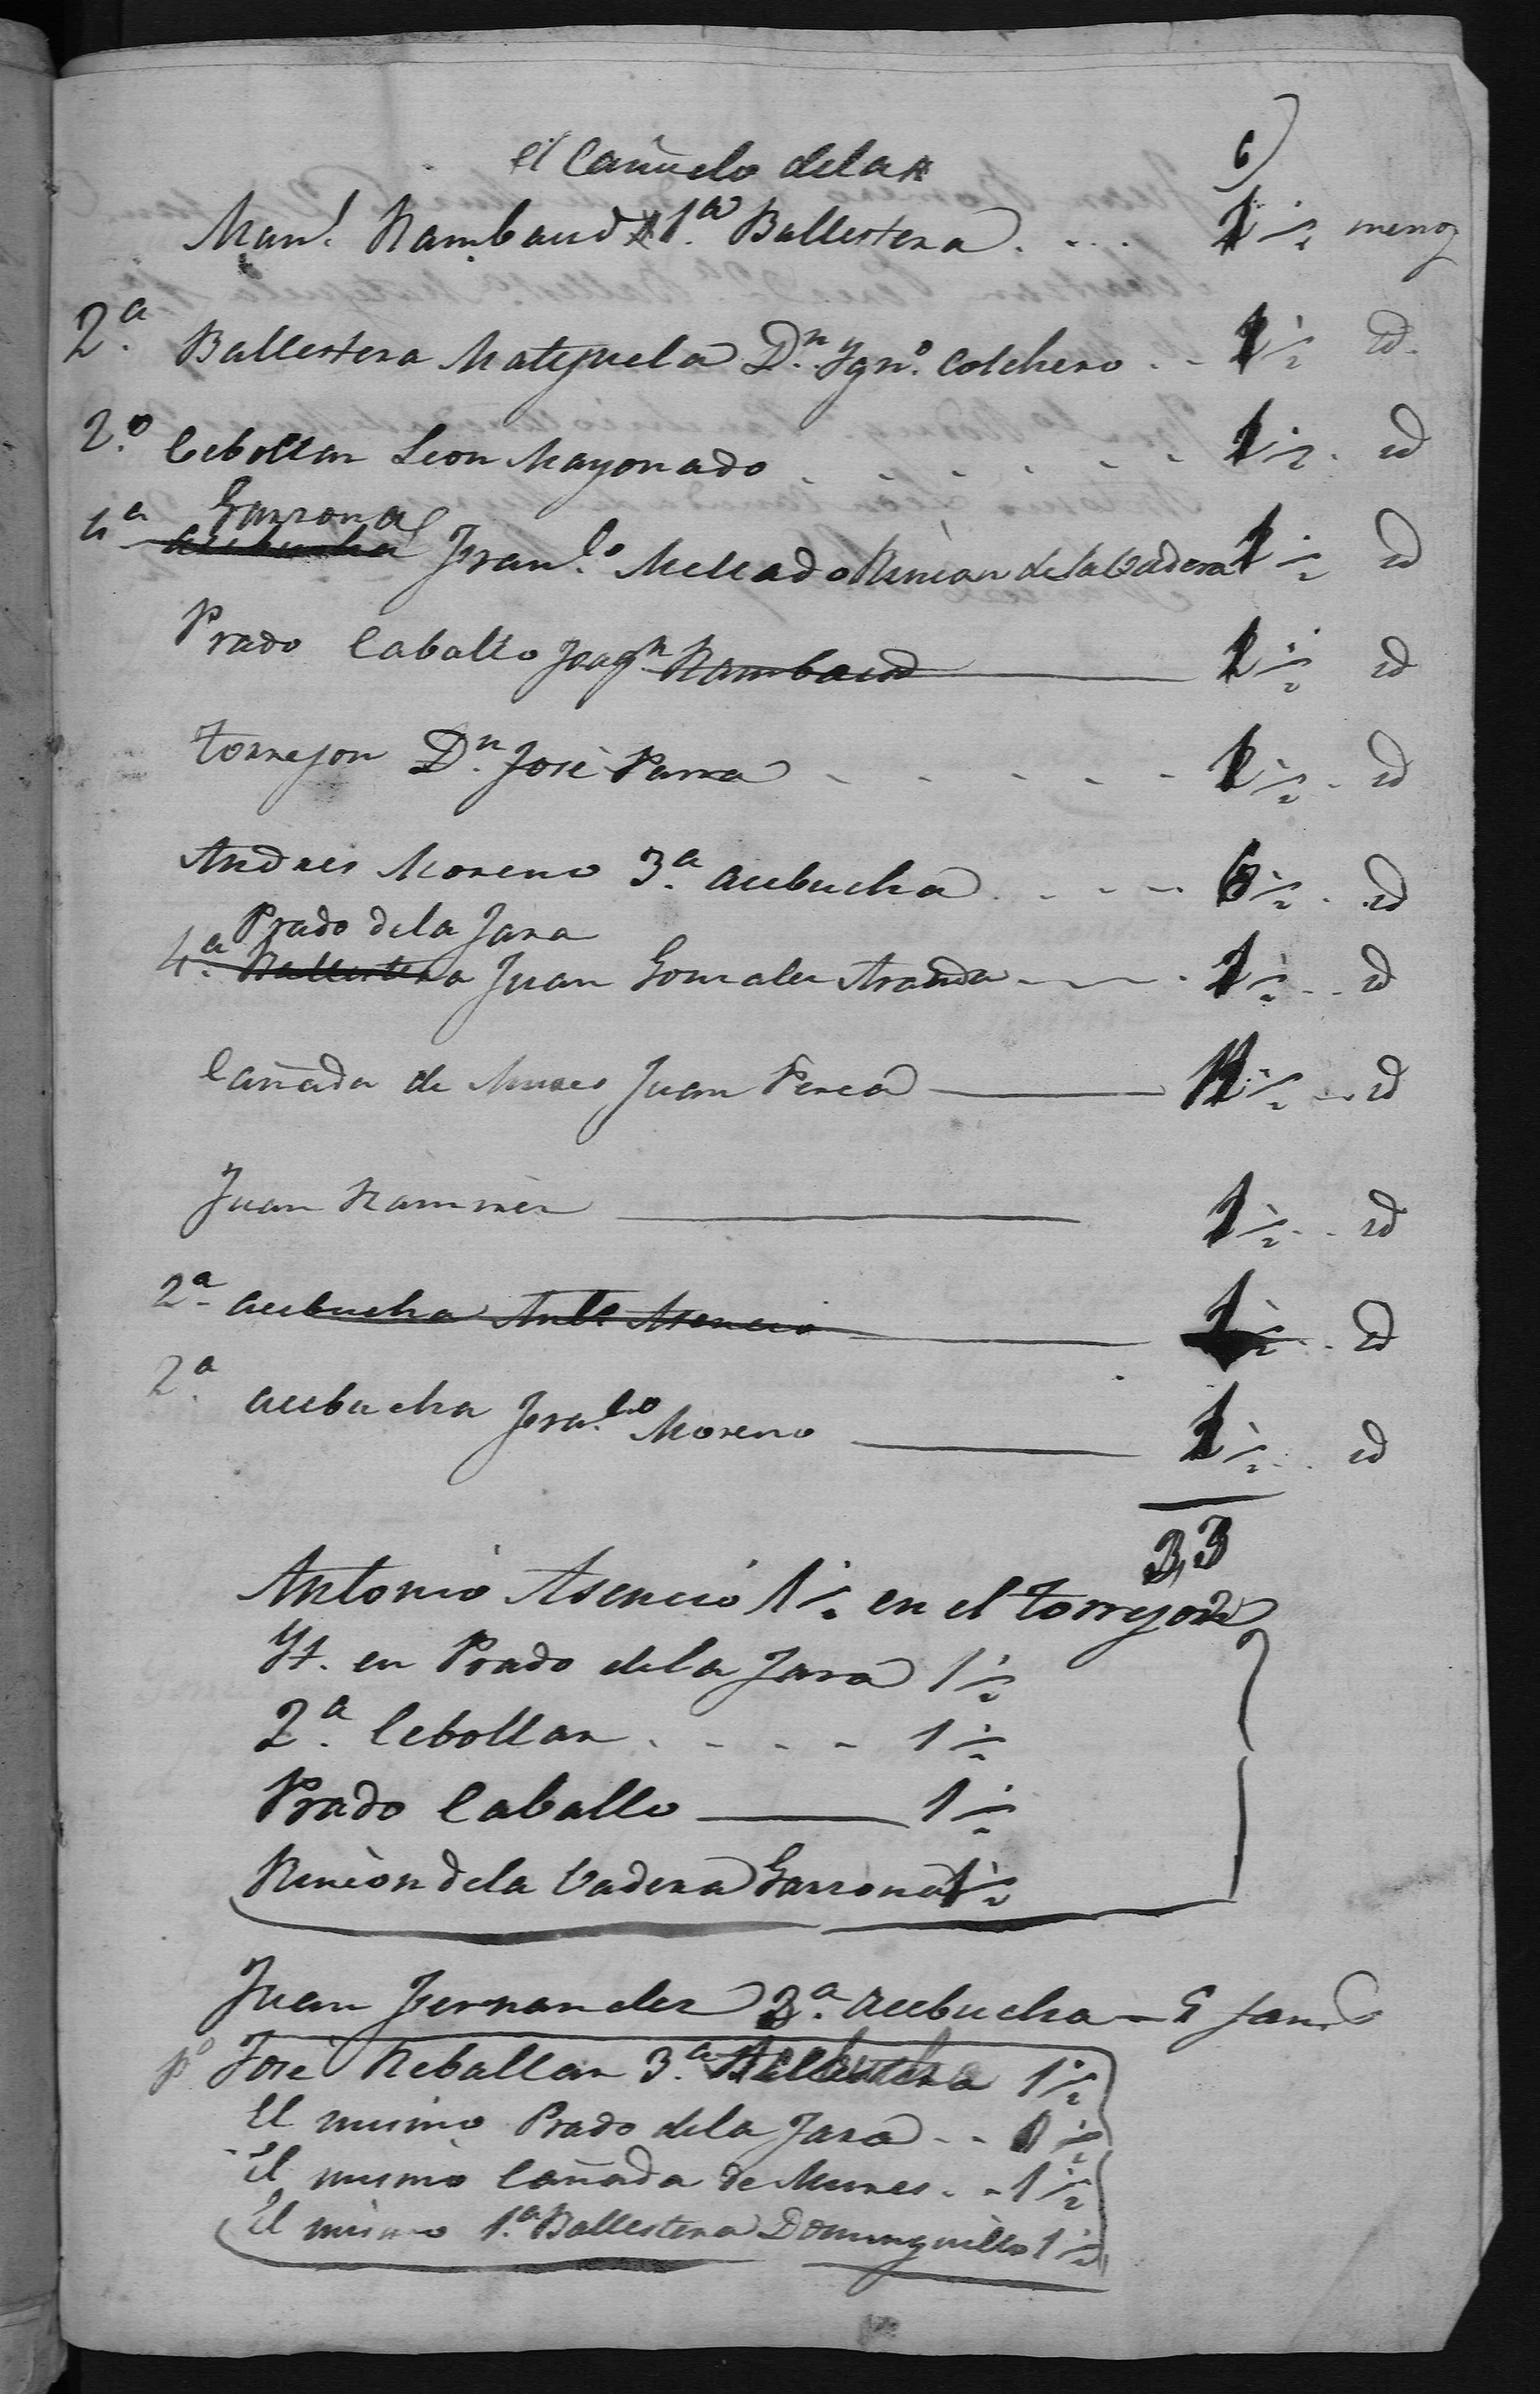 el Cañuelo dela 6)
Man.l Rambaud 1.a Ballestera . . . . 1 ½ menos
2.a Ballestera Mateguela D.n Ygn.o Colchero . . 1 ½ id.
2.o Cebollar Leon Mayorado . . . . . . 1 ½ . id
Garrona
4.a acebucha Fran.co Mellado Rincon de la Vadera 1 ½ id
Prado Caballo Joaq.n Rambaud 1 ½ id
Torrejon D.n José Parra - - - - - 1 ½ . id
Andres Moreno 3.a acebucha . . - - - 6 ½ . id
Prado dela Jara
4.a Ballestera Juan Gonzalez Aranda 1 ½ . . id
Cañada de Munes Juan Perea ½ . . id
Juan Ramirez 1 ½ . . id
2.a acebucha Ant.o Asencio 1 ½ . . id
2.a acebucha Fra.co Moreno 1 ½ . . id
33
Antonio Asencio 1 ½ en el torrejon
Yt. en Prado dela Jara 1 ½
2.a Cebollar . - - - 1 ½
Prado Caballo 1 ½
Rincon dela Vadera Garrona 1 ½
Juan Fernandez 3.a acebucha
p.o José Reballar 3.a 1 ½
El mismo Prado dela Jara - - 1 ½
El mismo Cañada de Munes . - 1 ½
El mismo 1.a Ballestera Dominguillo 1 ½